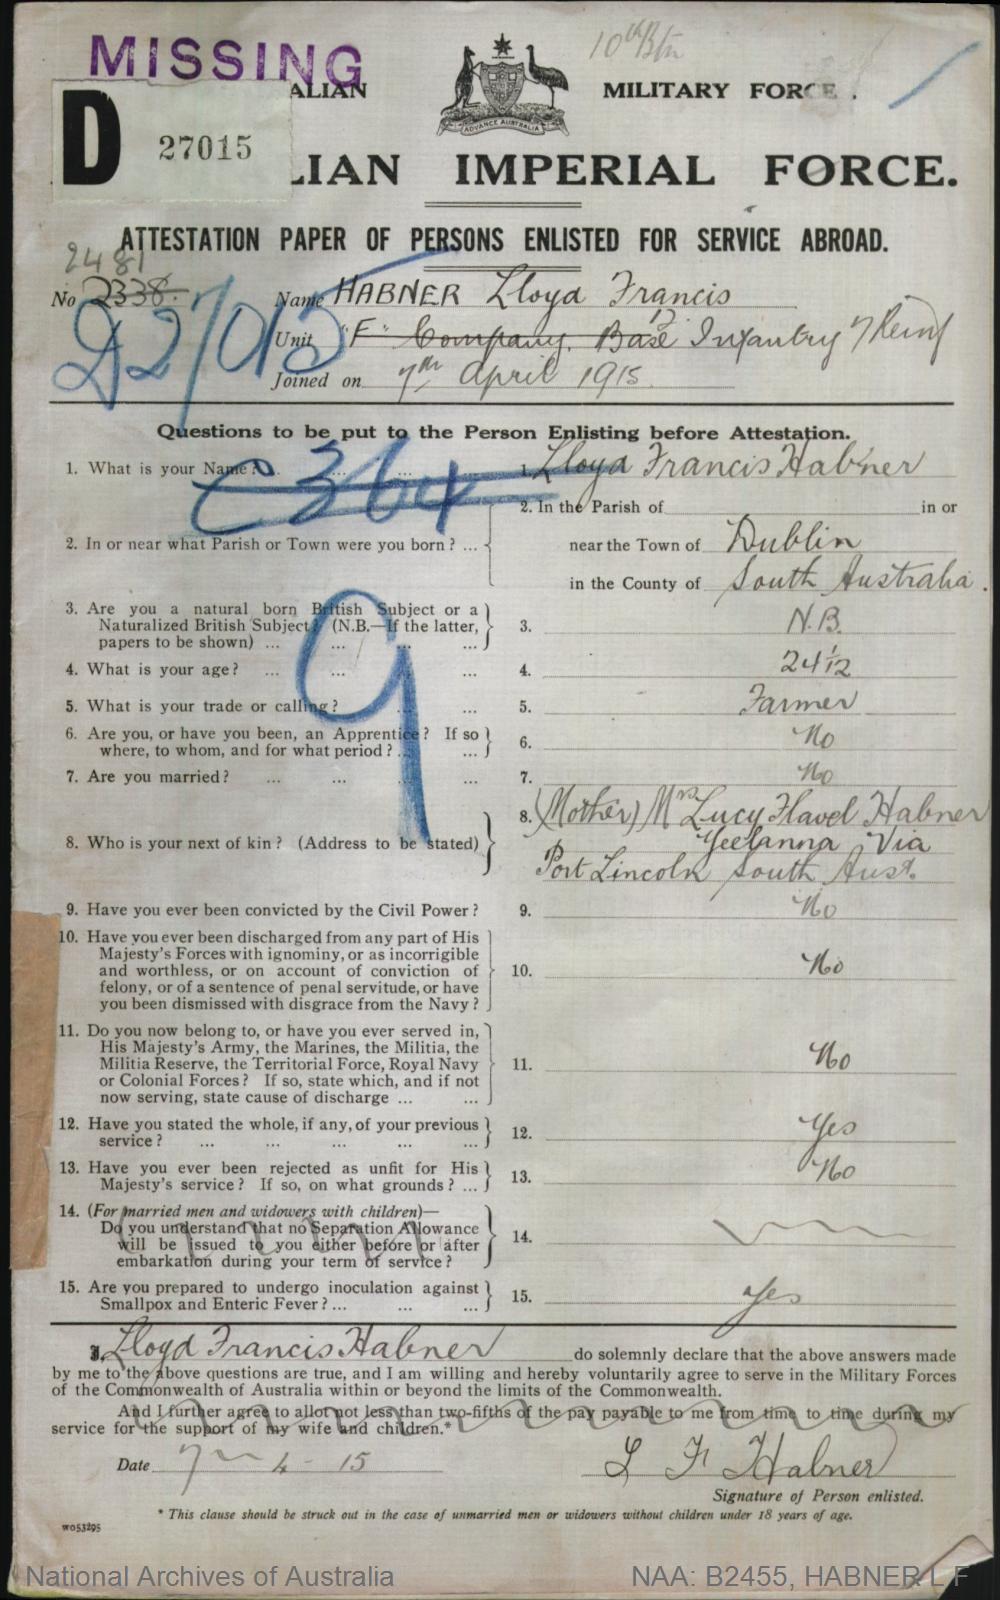 MISSING
10th Btn
ALIAN MILITARY FORCE.
ADVANCE AUSTRALIA
D 27015
LIAN IMPERIAL FORCE.
ATTESTATION PAPER OF PERSONS ENLISTED FOR SERVICE ABROAD.
2481
No 2338. Name HABNER Lloyd Francis
D27015
Unit "F" Company. Base Infantry 7 Reinf
Joined on 7th April 1915
Questions to be put to the Person Enlisting before Attestation.
1. What is your Name? ... 1. Lloyd Francis Habner
C364
2. In the Parish of in or
2. In or near what Parish or Town were you born? ... near the Town of Dublin
in the County of South Australia.
3. Are you a natural born British Subject or a
Naturalized British Subject? (N.B.—If the latter, 3. N.B.
papers to be shown) ... ... ... ...
9
4. What is your age? ... ... ... 4. 24 1/12
5. What is your trade or calling? ... ... 5. Farmer
6. Are you, or have you been, an Apprentice? If so
where, to whom, and for what period? ... ... 6. No
7. Are you married? ... ... ... ... 7. No
8. (Mother) Mrs Lucy Flavel Habner
8. Who is your next of kin? (Address to be stated) Yeelanna Via
Port Lincoln South Aust.
9. Have you ever been convicted by the Civil Power? 9. No
10. Have you ever been discharged from any part of His
Majesty's Forces with ignominy, or as incorrigible
and worthless, or on account of conviction of 10. No
felony, or of a sentence of penal servitude, or have
you been dismissed with disgrace from the Navy?
11. Do you now belong to, or have you ever served in,
His Majesty's Army, the Marines, the Militia, the
Militia Reserve, the Territorial Force, Royal Navy 11. No
or Colonial Forces? If so, state which, and if not
now serving, state cause of discharge ... ...
12. Have you stated the whole, if any, of your previous
service? ... ... ... ... ... 12. Yes
13. Have you ever been rejected as unfit for His
Majesty's service? If so, on what grounds? ... 13. No
14. (For married men and widowers with children)—
Do you understand that no Separation Allowance
will be issued to you either before or after 14.
embarkation during your term of service?
15. Are you prepared to undergo inoculation against
Smallpox and Enteric Fever? ... ... ... 15. Yes
I, Lloyd Francis Habner do solemnly declare that the above answers made
by me to the above questions are true, and I am willing and hereby voluntarily agree to serve in the Military Forces
of the Commonwealth of Australia within or beyond the limits of the Commonwealth.
And I further agree to allot not less than two-fifths of the pay payable to me from time to time during my
service for the support of my wife and children.*
Date 7 - 4 - 15 L F Habner
Signature of Person enlisted.
* This clause should be struck out in the case of unmarried men or widowers without children under 18 years of age.
W053295
National Archives of Australia NAA: B2455, HABNER L F